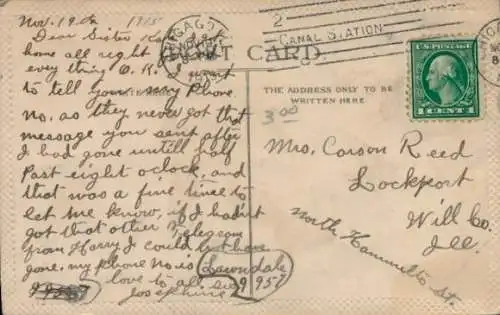 Nov. 19th 1915
Dear Sister Kat
home all right
every thing O.K.
to tell you my Phone.
no, as they never got that
message you sent after
I had gone untill half
Past eight oclock, and
that was a fine time to
let me know, if I hadist
got that other Telegram
from Harry I could not have
gone, my phone no. is Lawndale
9957
love to all, sis
Josephine
CHICAGO
2
CANAL STATION
POST CARD.
THE ADDRESS ONLY TO BE
WRITTEN HERE
3 00
U.S. POSTAGE
1 CENT 1
Mrs. Carson Reed
Lockport
Will Co.
Ill.
North Hammilto St.